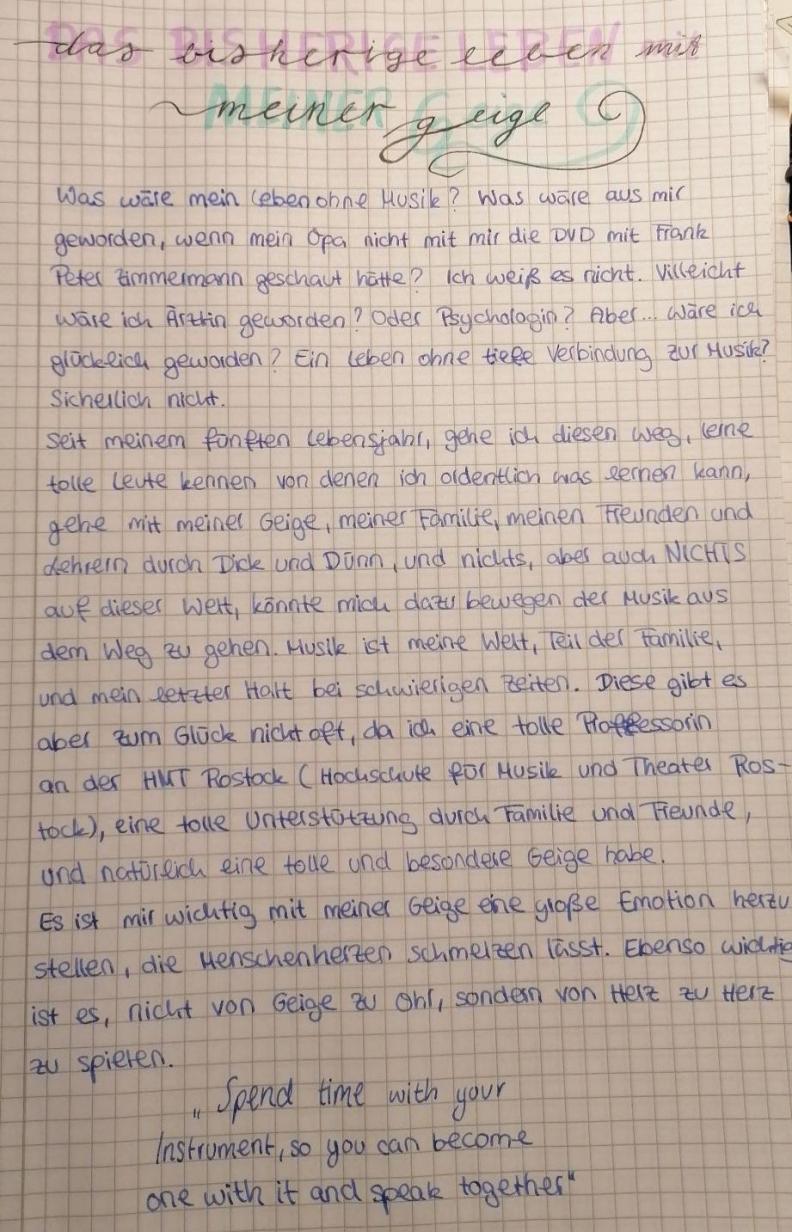 das bisherige leben mit
meiner geige
Was wäre mein Leben ohne Musik? Was wäre aus mir
geworden, wenn mein Opa nicht mit mir die DVD mit Frank
Peter Zimmermann geschaut hätte? Ich weiß es nicht. Villeicht
wäre ich Ärztin geworden? Oder Psychologin? Aber... wäre ich
glücklich geworden? Ein Leben ohne tiefe Verbindung zur Musik?
Sicherlich nicht.
Seit meinem fünften Lebensjahr, gehe ich diesen Weg, lerne
tolle Leute kennen von denen ich ordentlich was lernen kann,
gehe mit meiner Geige, meiner Familie, meinen Freunden und
Lehrern durch Dick und Dünn, und nichts, aber auch NICHTS
auf dieser Welt, könnte mich dazu bewegen der Musik aus
dem Weg zu gehen. Musik ist meine Welt, Teil der Familie,
und mein letzter Halt bei schwierigen Zeiten. Diese gibt es
aber zum Glück nicht oft, da ich eine tolle Proffessorin
an der HMT Rostock (Hochschule für Musik und Theater Ros-
tock), eine tolle Unterstützung durch Familie und Freunde,
und natürlich eine tolle und besondere Geige habe.
Es ist mir wichtig mit meiner Geige eine große Emotion herzu
stellen, die Menschenherzen schmelzen lässt. Ebenso wichtig
ist es, nicht von Geige zu Ohr, sondern von Herz zu Herz
zu spielen.
„Spend time with your
Instrument, so you can become
one with it and speak together“